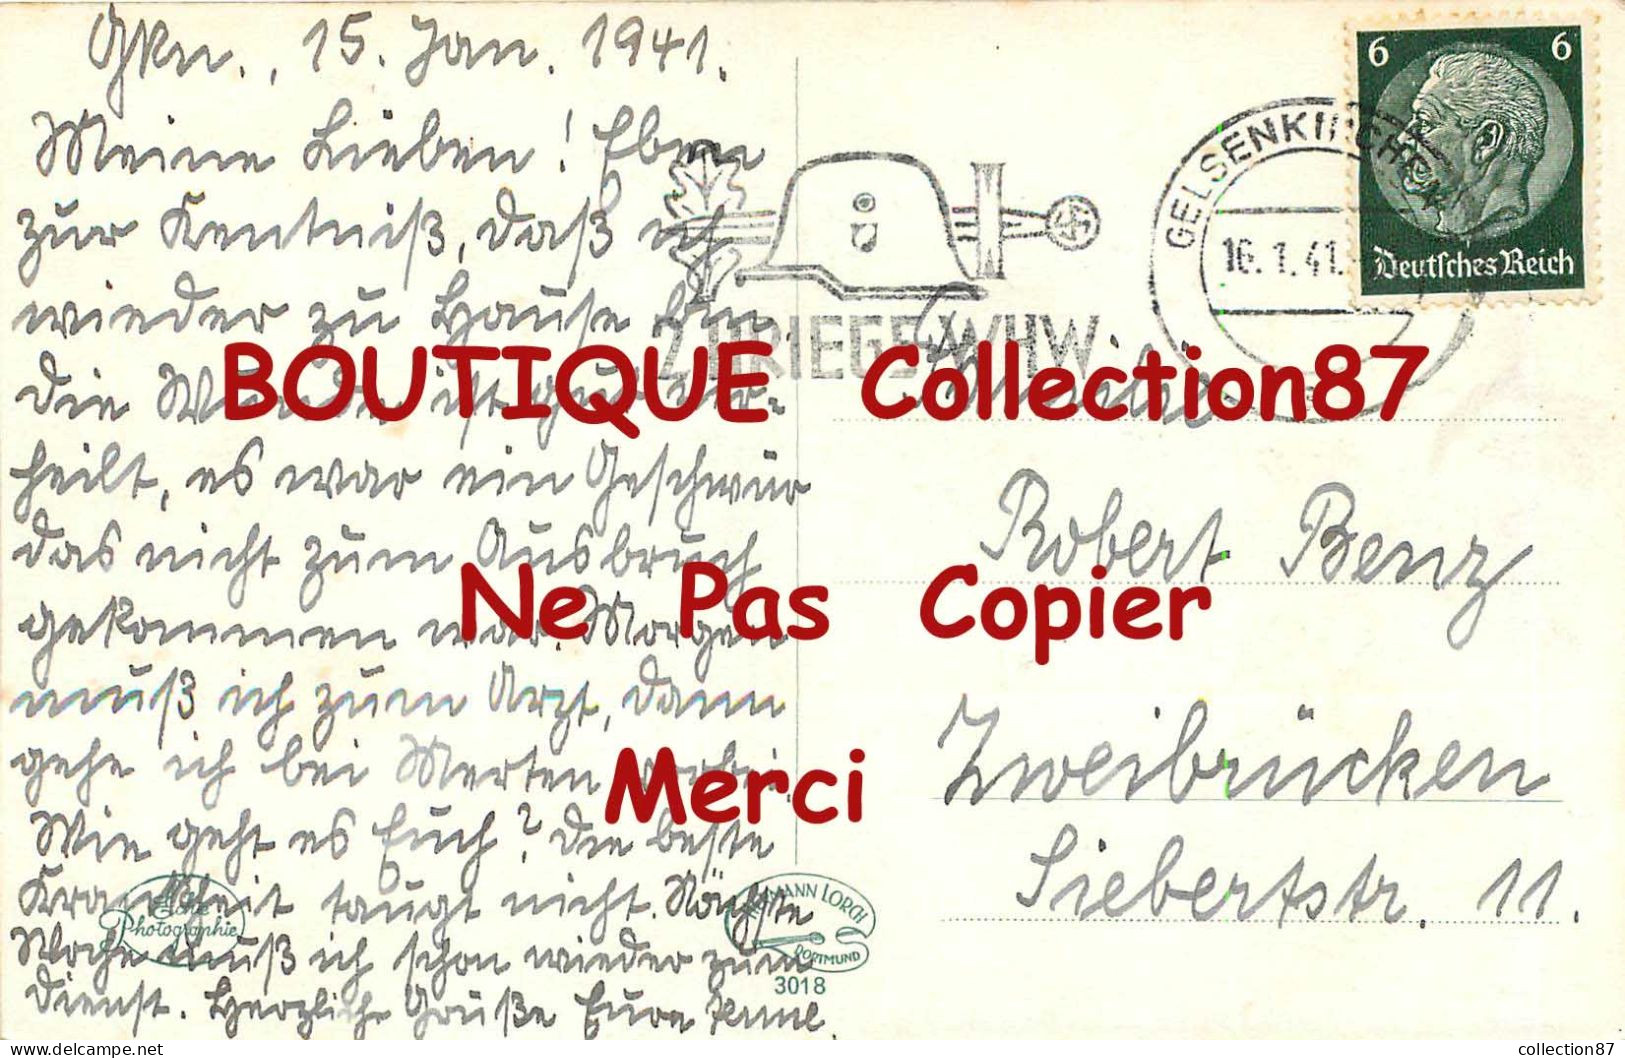 Gkn., 15. Jan. 1941.
Meine Lieben! Eben
zur Kentniß, daß ich
wieder zu Hause bin
die Wunde ist gut ver-
heilt, es war ein Geschwür
das nicht zum Ausbruch
gekommen war. Morgen
muß ich zum Arzt, dann
gehe ich bei Merten vorbei.
Wie geht es Euch? Die beste
Krankheit taugt nicht. Nächste
Woche muß ich schon wieder zum
Dienst. Herzliche Grüße Eure
Echte
Photographie
HERMANN LORCH
DORTMUND
3018
KRIEGS-WHW
GELSENKIRCHEN
16.1.41.
6 6
Deutsches Reich
Familie
Robert Benz
Zweibrücken
Siebertstr. 11.
BOUTIQUE Collection87
Ne Pas Copier
Merci
Collection87 sur Delcampe.net
collection87